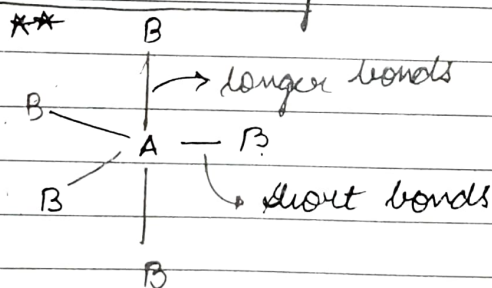 ** B
longer bonds
B
A — B
B
short bonds
B